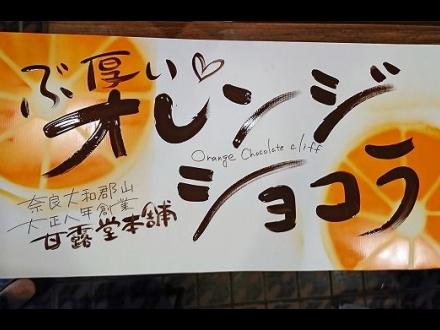 ぶ厚い♡
オレンジ
Orange Chocolate cliff
ショコラ
奈良大和郡山
大正八年創業
甘露堂本舗